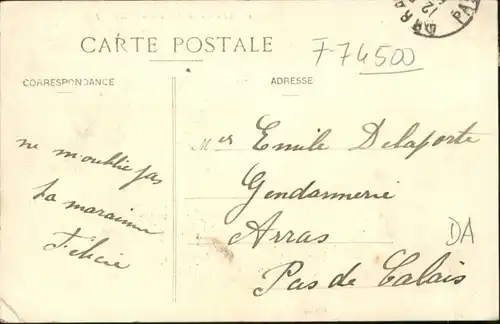 ARRAS
12
PAS
CARTE POSTALE
F-74500
CORRESPONDANCE
ADRESSE
ne m'oublie pas
ta marainne
Félicie
Mer Emile Delaporte
Gendarmerie
Arras
Pas de Calais
DA